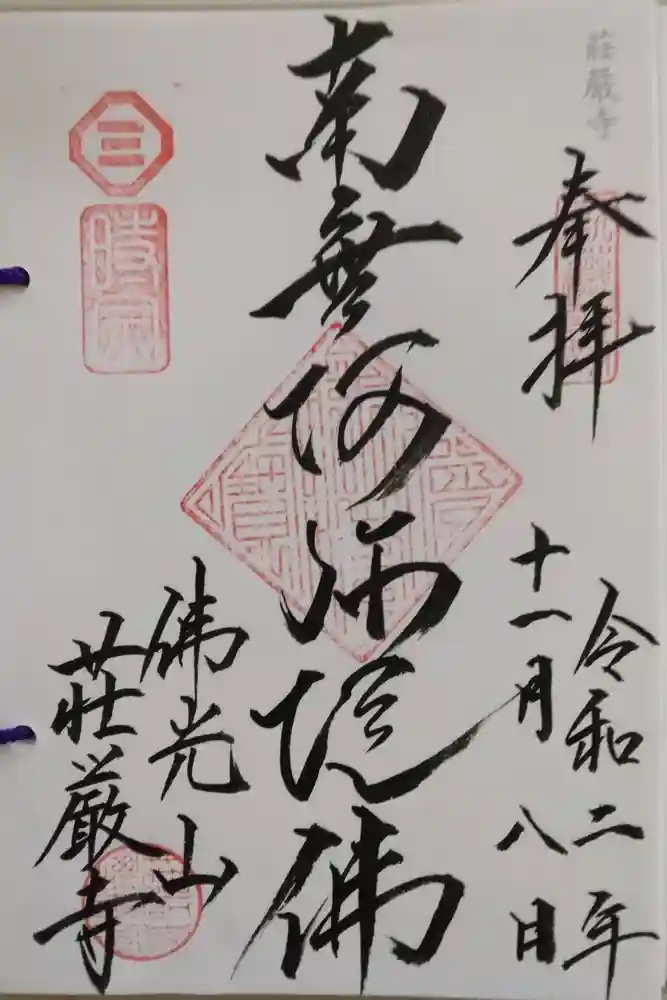 莊嚴寺
奉拝
令和二年
十一月八日
南無阿弥陀佛
佛光山
荘厳寺
三
時宗